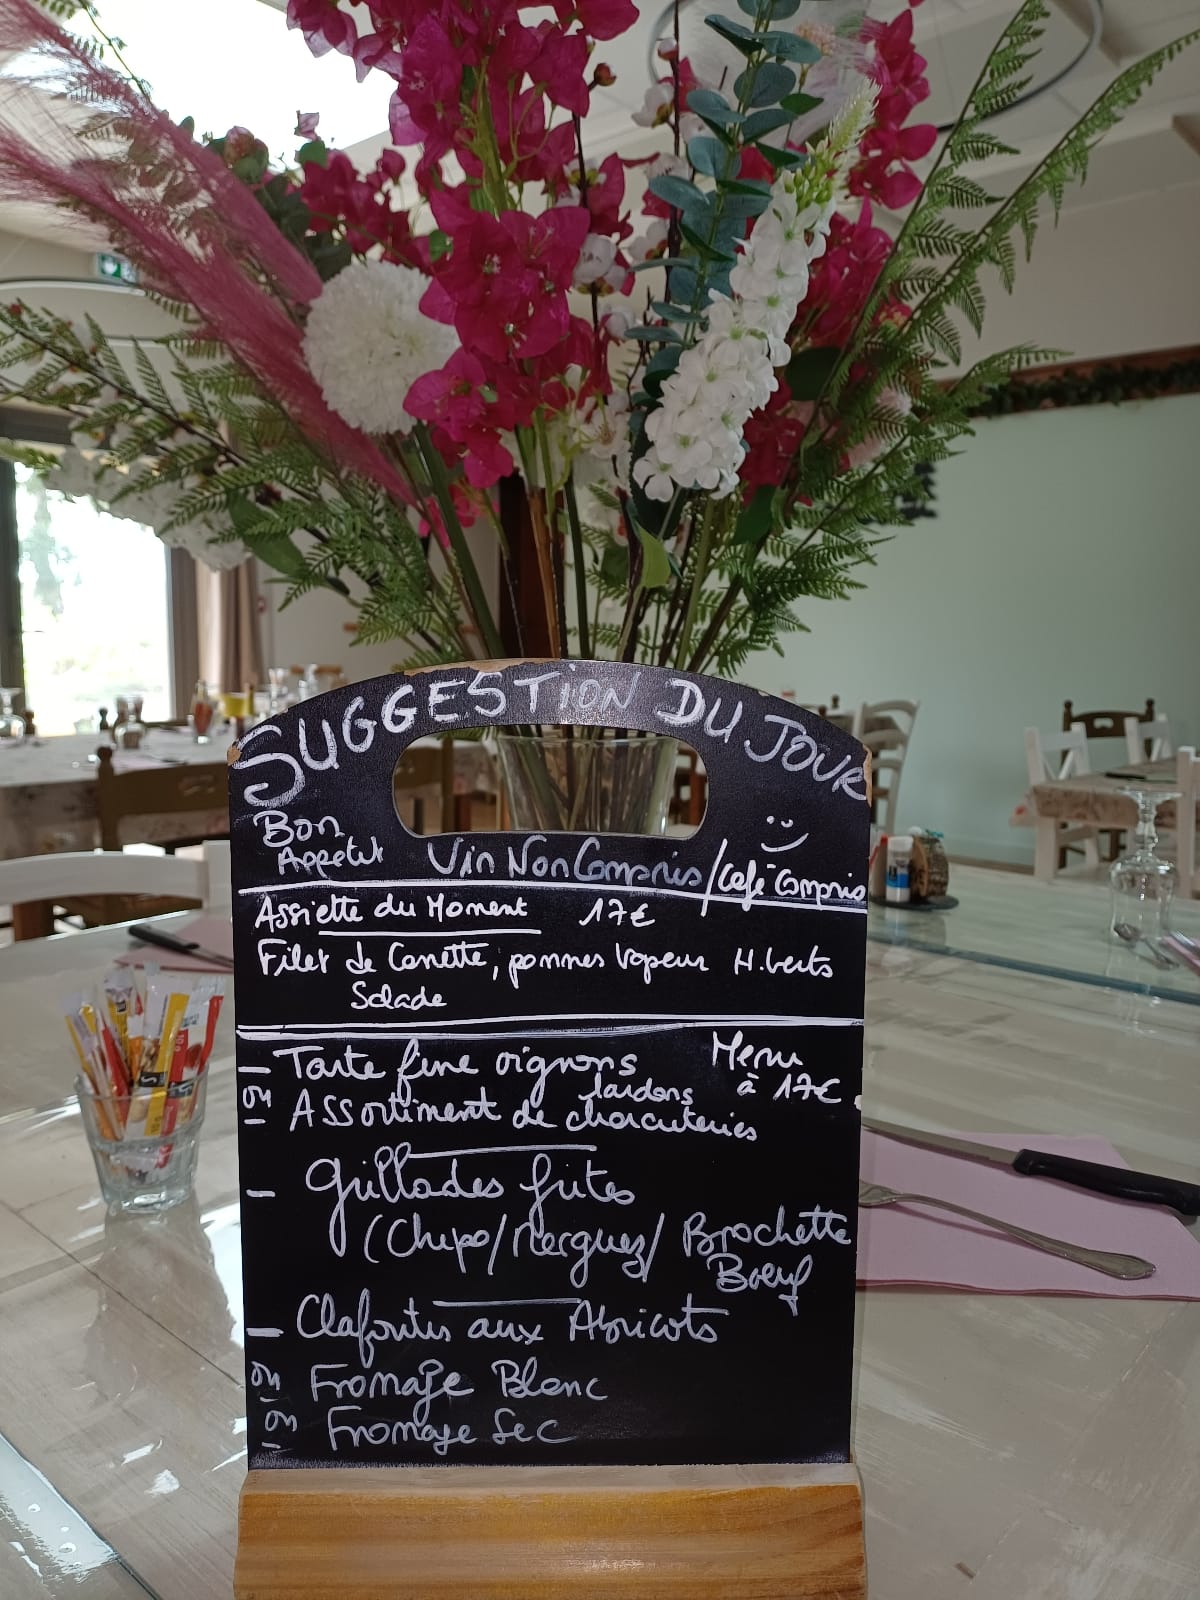 SUGGESTION DU JOUR
Bon
Appetit
Vin Non Compris / Café Compris
Assiette du Moment 17€
Filet de Canette, pommes Vapeur H.verts
Salade
- Tarte fine oignons lardons
Menu
à 17€
- ou - Assortiment de charcuteries
- Grillades frites
(Chipo/Merguez/ Brochette
Boeuf
- Clafoutis aux Abricots
ou Fromage Blanc
ou Fromage Sec